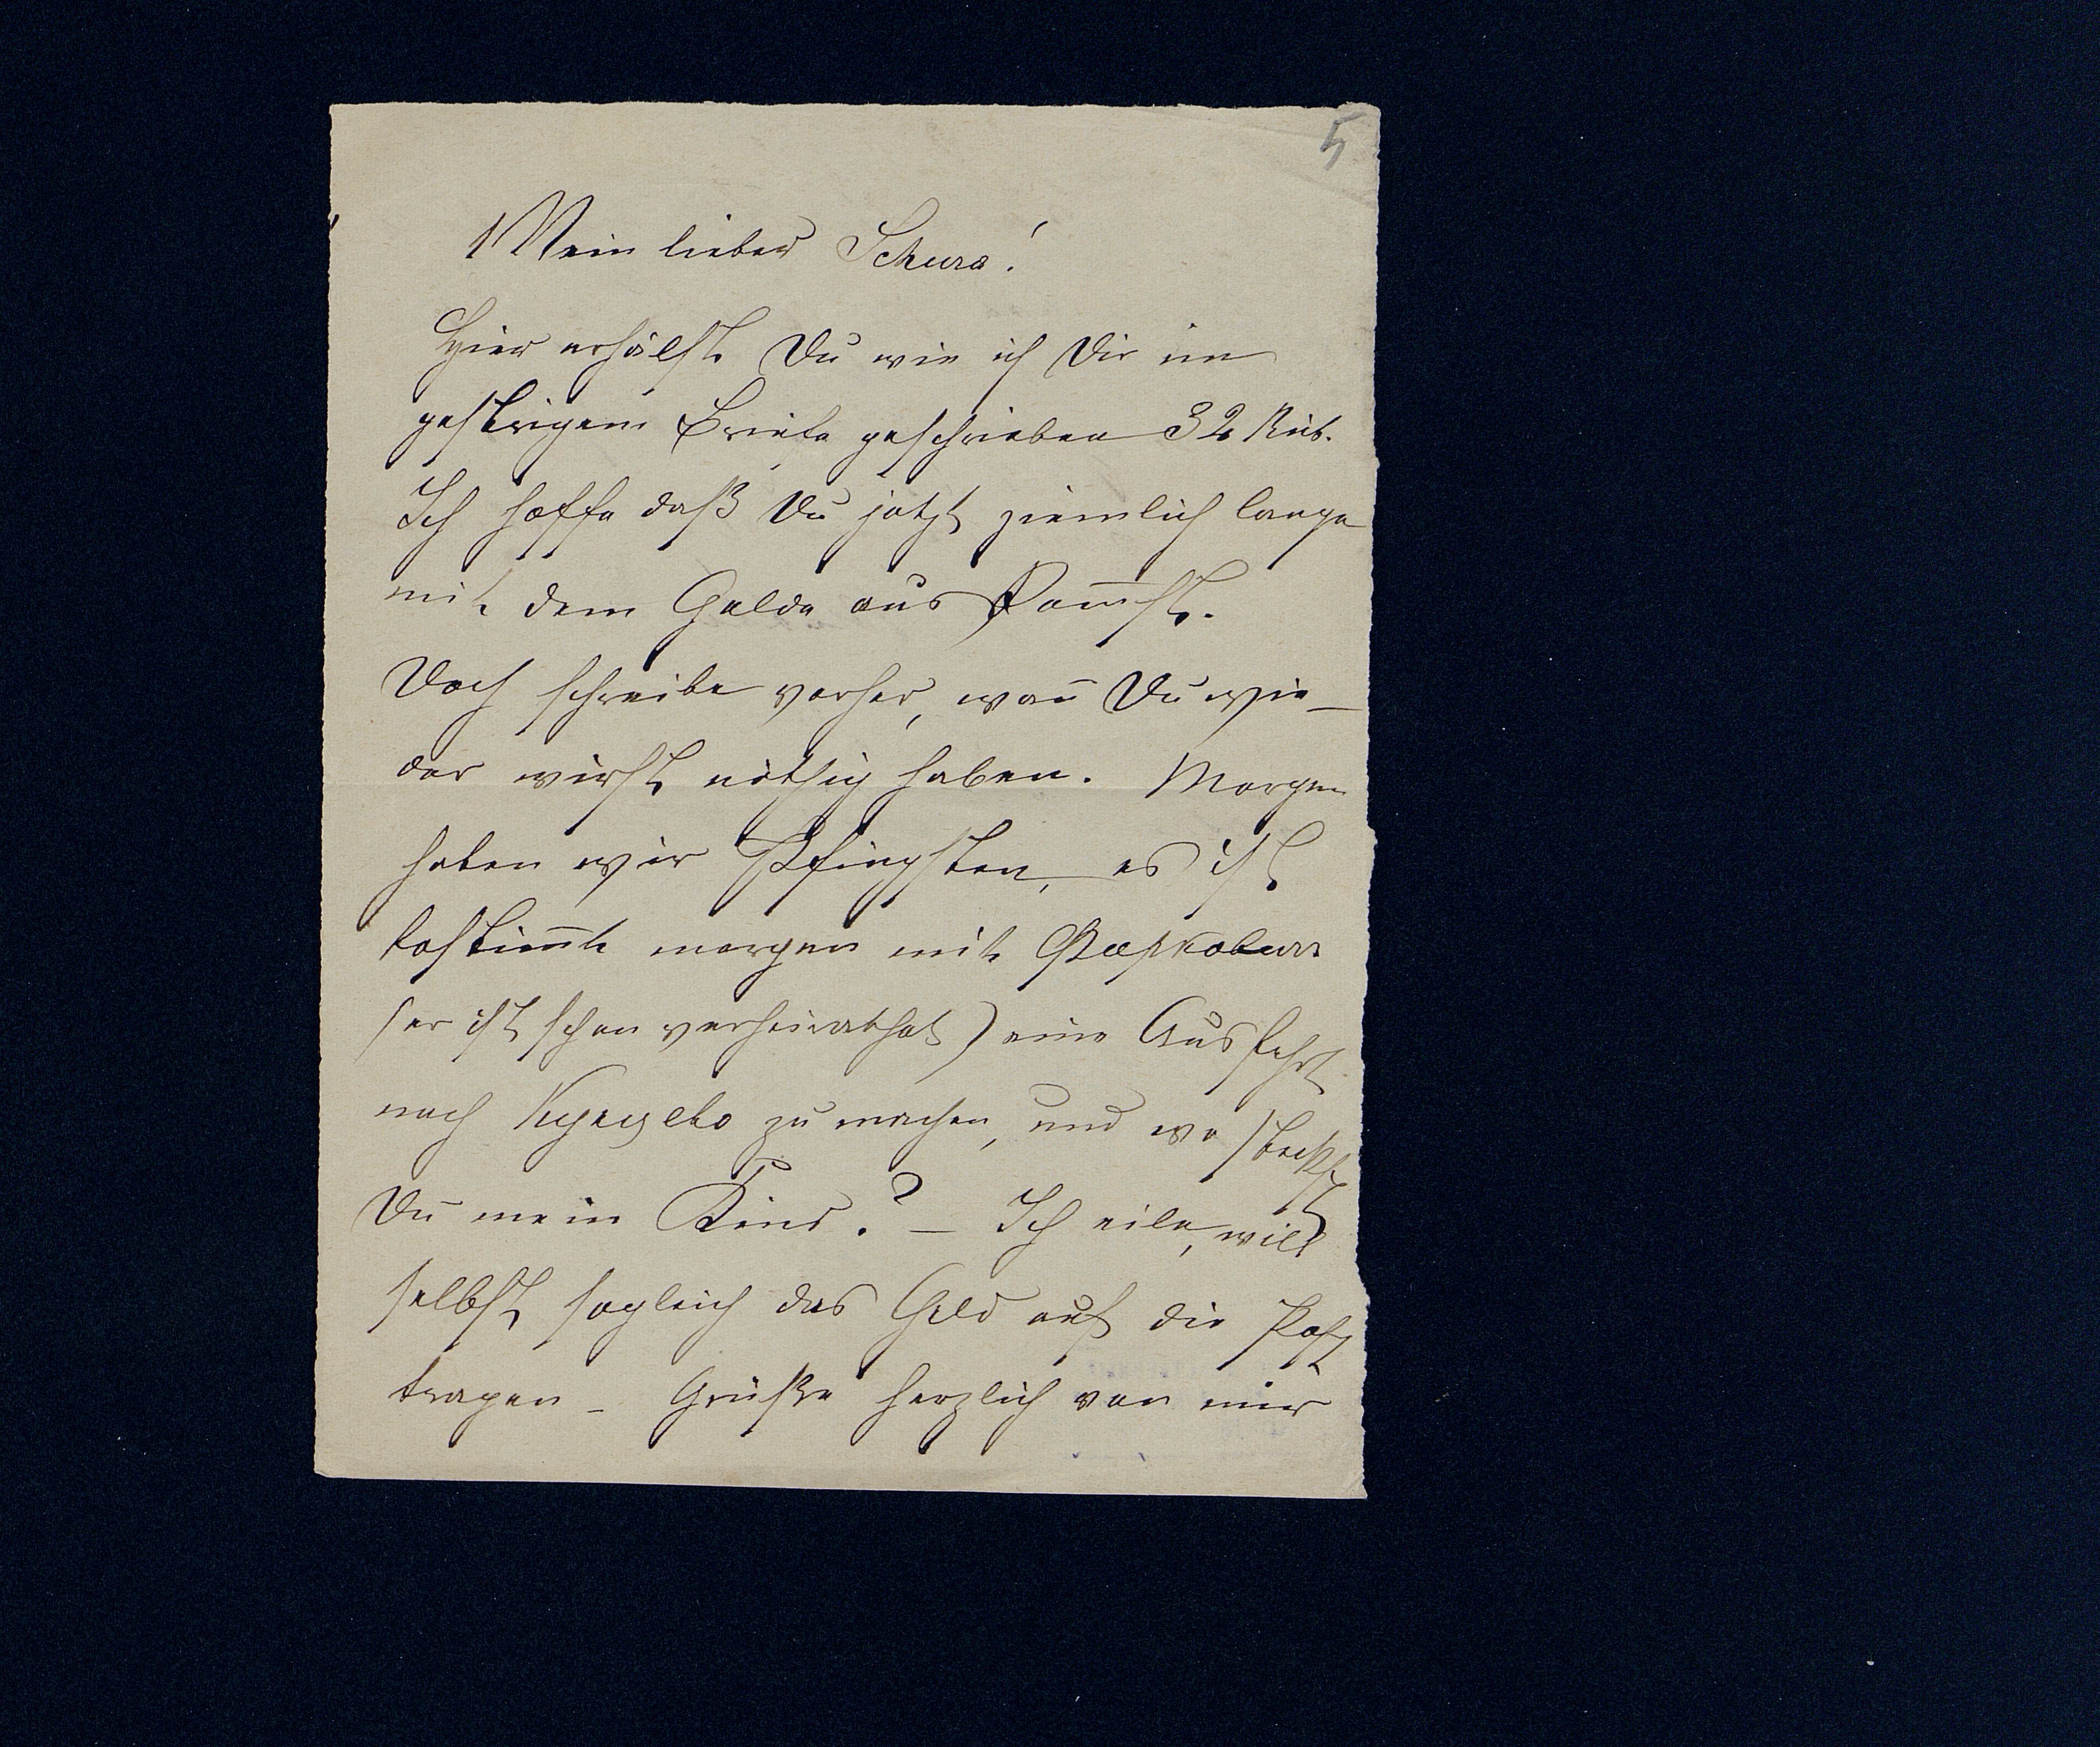 5
Mein lieber Schura!
Hier erhälst Du wie ich Dir im
gestrigem Briefe geschrieben 32 Rub.
Ich hoffe daß Du jetzt ziemlich lange
mit dem Gelde aus kom̄st.
Doch schreibe vorher, wan̄ Du wie-
der wirst nöthig haben. Morgen
haben wir Pfingsten, es ist
bestim̄t morgen mit
(er ist schon verheirathet) eine Ausfahrt
nach zu machen, und wo steckst
Du mein Kind? – Ich eile, will
selbst sogleich das Geld auf die Post
tragen – Grüße herzlich von mir